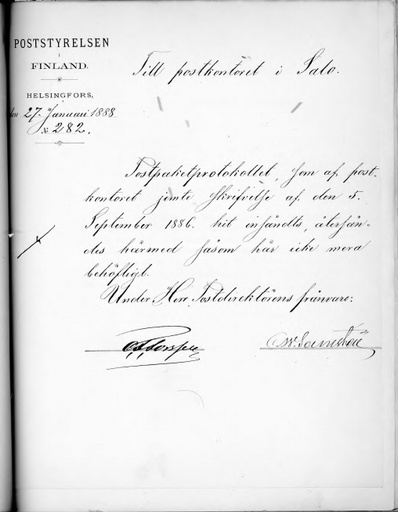 POSTSTYRELSEN
i
FINLAND.
HELSINGFORS,
den 27. Januari 1888.
№ 282.
Till postkontoret i Salo.
Postpaketprotokollet, som af post-
kontoret jemte skrifvelse af den 5.
September 1886 hit insändts, återsän-
des härmed såsom här icke mera
behöfligt.
Under Herr Postdirektörens frånvaro: